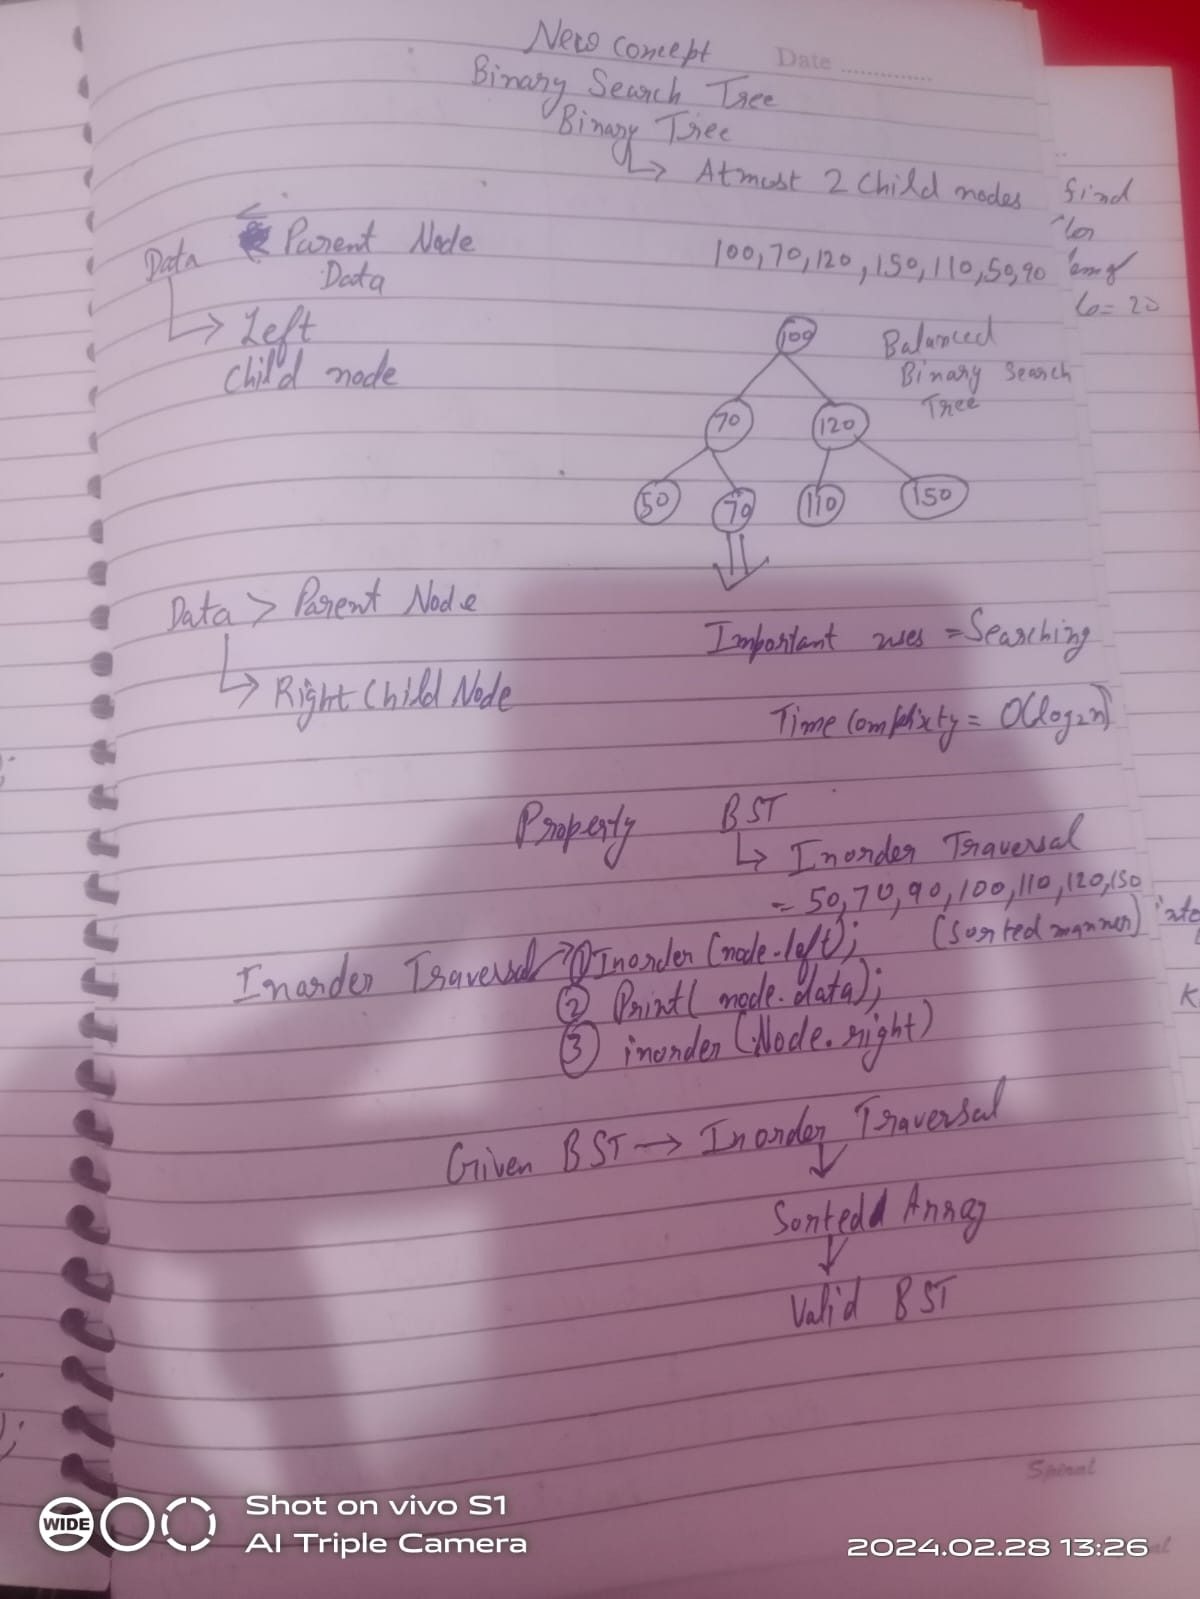 New concept
Date ..............
Binary Search Tree
Binary Tree
↳ Atmost 2 Child nodes
find
Data < Parent Node
Data
↳ Left
Child node
100, 70, 120, 150, 110, 50, 90
= 20
100
Balanced
Binary Search
Tree
70 120
50 70 110 150
Data > Parent Node
↳ Right Child Node
Important uses = Searching
Time Complixty = O(log₂n)
Property BST
↳ Inorder Traversal
= 50, 70, 90, 100, 110, 120, 150
(Sorted manner)
Inorder Traversal → ① Inorder (node.left);
② Print( node.data);
③ inorder (Node.right)
K
Given BST → Inorder Traversal
↓
Sorted Array
↓
Valid BST
Spiral
WIDE
Shot on vivo S1
AI Triple Camera
2024.02.28 13:26